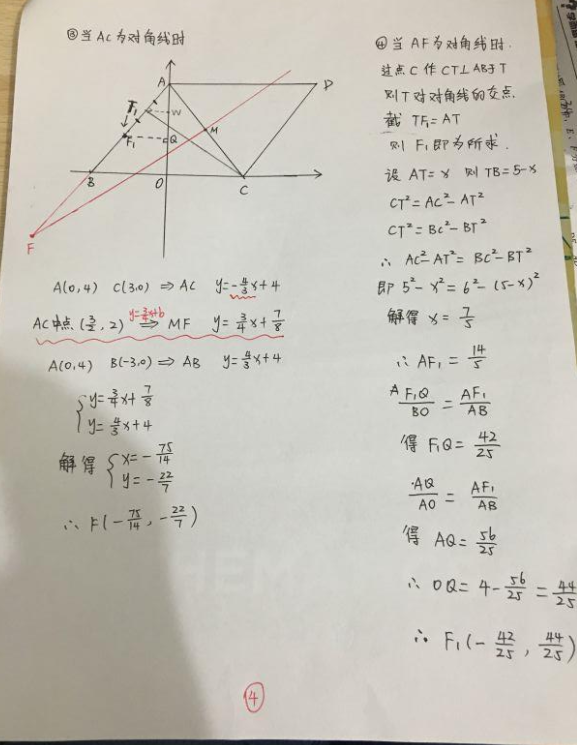 ③当AC为对角线时
A
D
F₁
W
M
F₁
Q
B
O
C
F
A(0,4) C(3,0) ⇒ AC y=-4/3x+4
AC中点(3/2,2) y=3/4x+b ⇒ MF y=3/4x+7/8
A(0,4) B(-3,0) ⇒ AB y=4/3x+4
{y=3/4x+7/8
y=4/3x+4
解得 {x=-75/14
y=-22/7
∴F(-75/14,-22/7)
④当AF为对角线时.
过点C作CT⊥AB于T
则T对对角线的交点.
截 TF₁=AT
则 F₁即为所求.
设 AT=x 则 TB=5-x
CT²=AC²-AT²
CT²=BC²-BT²
∴ AC²-AT²=BC²-BT²
即 5²-x²=6²-(5-x)²
解得 x=7/5
∴ AF₁=14/5
A F₁Q/BO=AF₁/AB
得 F₁Q=42/25
AQ/AO=AF₁/AB
得 AQ=56/25
∴ OQ=4-56/25=44/25
∴ F₁(-42/25,44/25)
④